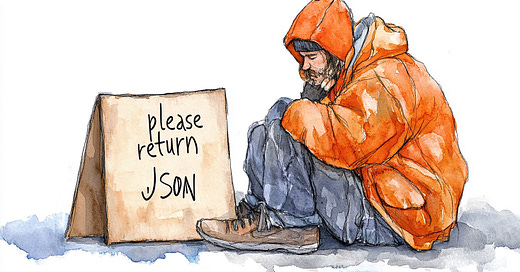 please
return
JSON